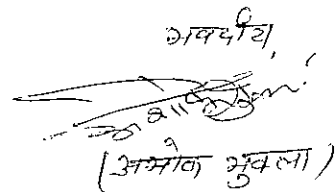 भवदीय,
(अशोक शुक्ला)